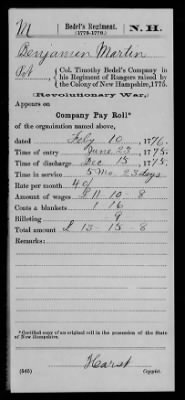 M Bedel's Regiment. N.H.
(1775-1776.)
Benjamin Martin
Pvt, Col. Timothy Bedel's Company in
his Regiment of Rangers raised by
the Colony of New Hampshire, 1775.
(Revolutionary War.)
Appears on
Company Pay Roll*
of the organization named above,
dated Feby 10, 1776.
Time of entry June 23, 1775.
Time of discharge Dec 15, 1775.
Time in service 5 Mo 23 days
Rate per month 40/
Amount of wages £ 11-10-8
Coats & blankets 1-16
Billeting 9
Total amount £ 13-15-8
Remarks:
*Certified copy of an original roll in the possession of the State
of New Hampshire.
(545) Copyist.